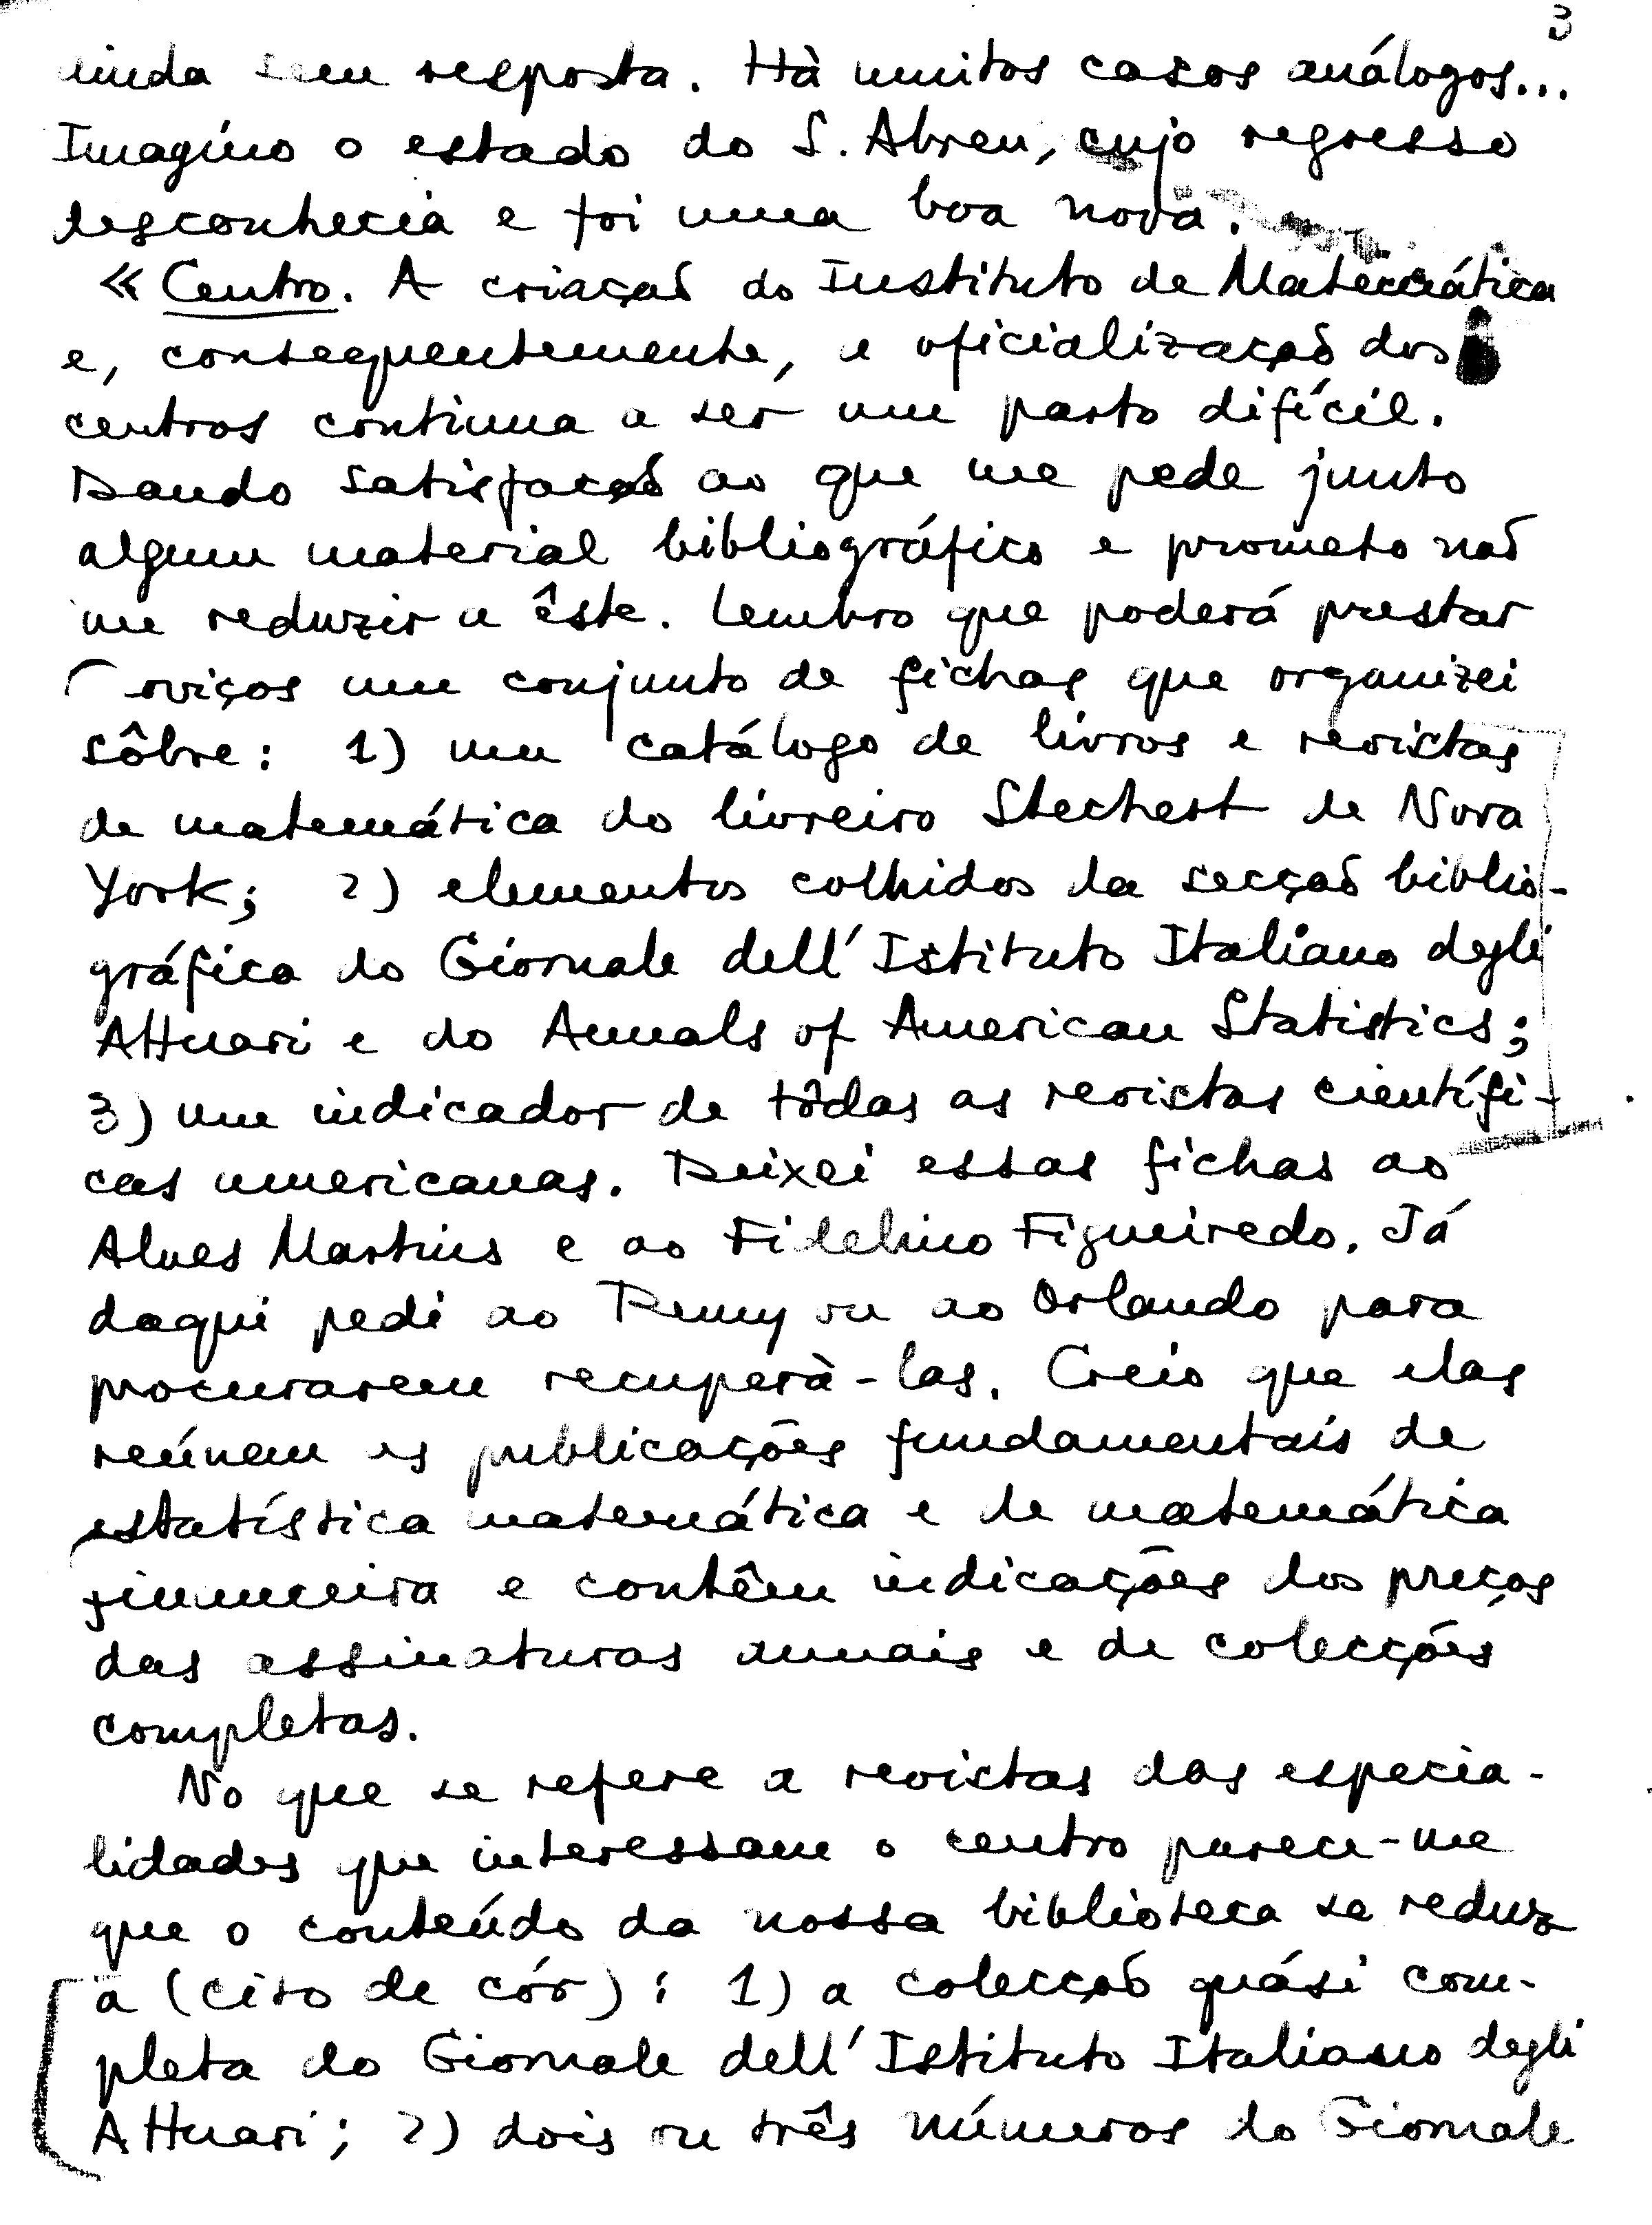 3
ainda sem resposta. Hà muitos casos análogos...
Imagino o estado do S. Abreu, cujo regresso
desconhecia e foi uma boa nova.
« Centro. A criação do Instituto de Matemática
e, consequentemente, a oficialização dos
centros continua a ser um parto difícil.
Dando satisfação ao que me pede junto
algum material bibliográfico e prometo não
me reduzir a êste. Lembro que poderá prestar
serviços um conjunto de fichas que organizei
sôbre: 1) um catálogo de livros e revistas
de matemática do livreiro Stechert de Nova
York; 2) elementos colhidos da secção biblio-
gráfica do Giornale dell'Istituto Italiano degli
Attuari e do Annals of American Statistics;
3) um indicador de tôdas as revistas científi-
cas americanas. Deixei essas fichas ao
Alves Martins e ao Fidelino Figueiredo. Já
daqui pedi ao Remy ou ao Orlando para
procurarem recuperà-las. Creio que elas
reúnem as publicações fundamentais de
estatística matemática e de matemática
financeira e contêm indicações dos preços
das assinaturas anuais e de colecções
completas.
No que se refere a revistas das especia-
lidades que interessam o centro parece-me
que o conteúdo da nossa biblioteca se reduz
a (cito de cór): 1) a colecção quási com-
pleta do Giornale dell'Istituto Italiano degli
Attuari; 2) dois ou três números do Giornale